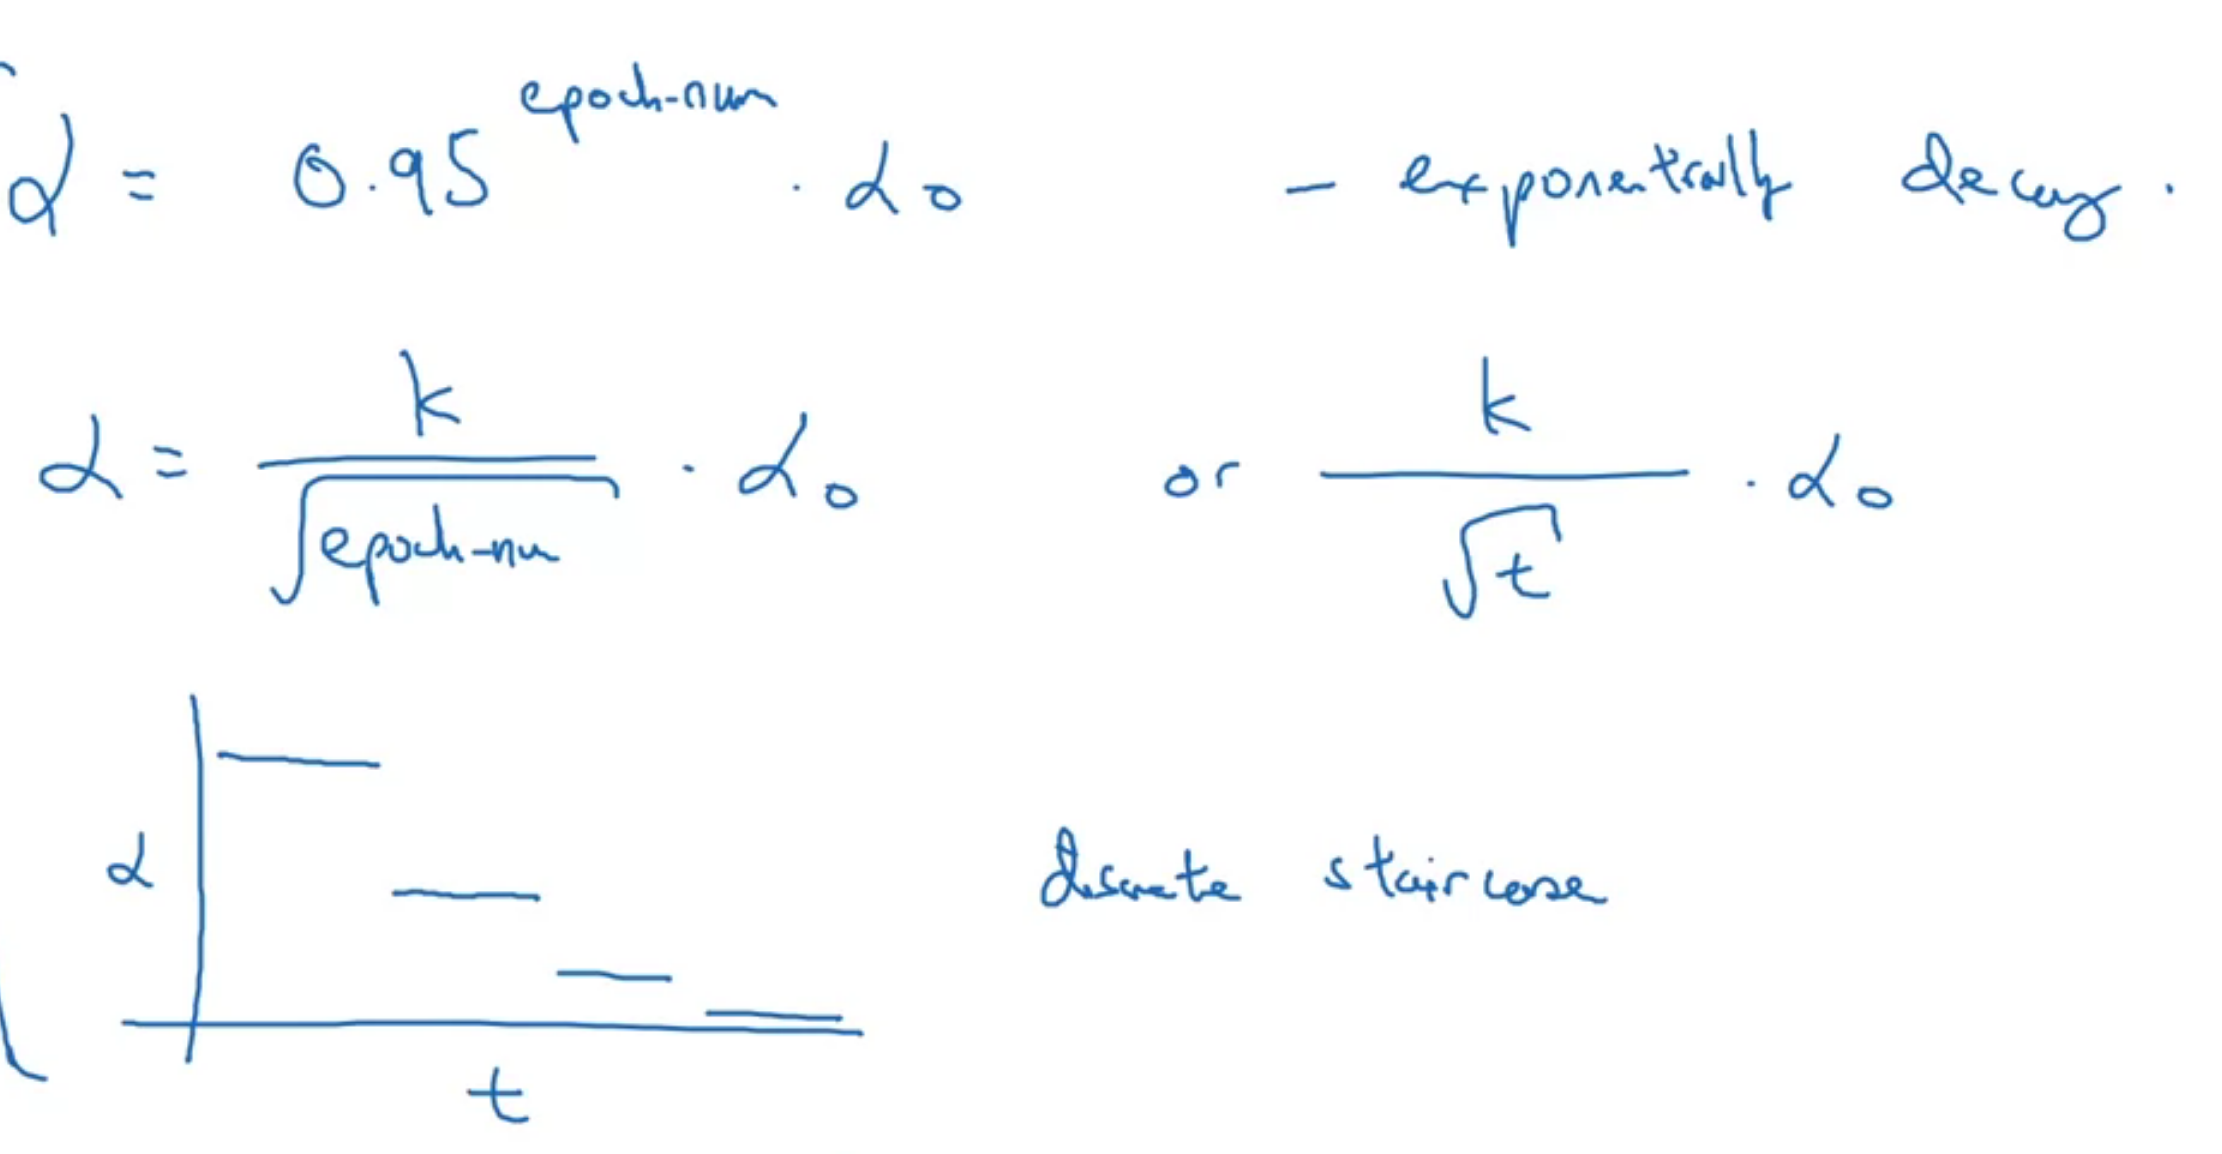 α = 0.95^epoch-num · α₀ - exponentially decay.
α = k/√epoch-num · α₀ or k/√t · α₀
α discrete staircase
t